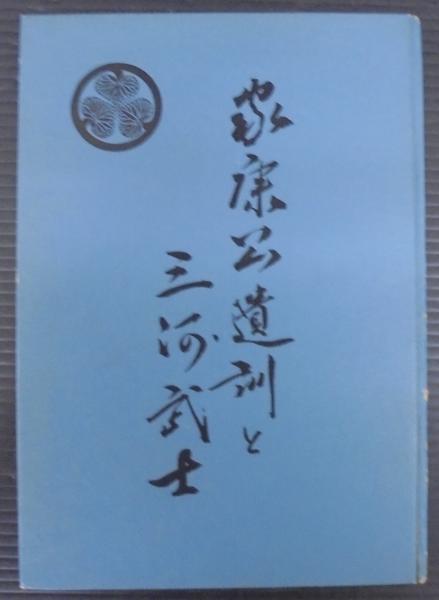 家康公遺訓と
三河武士